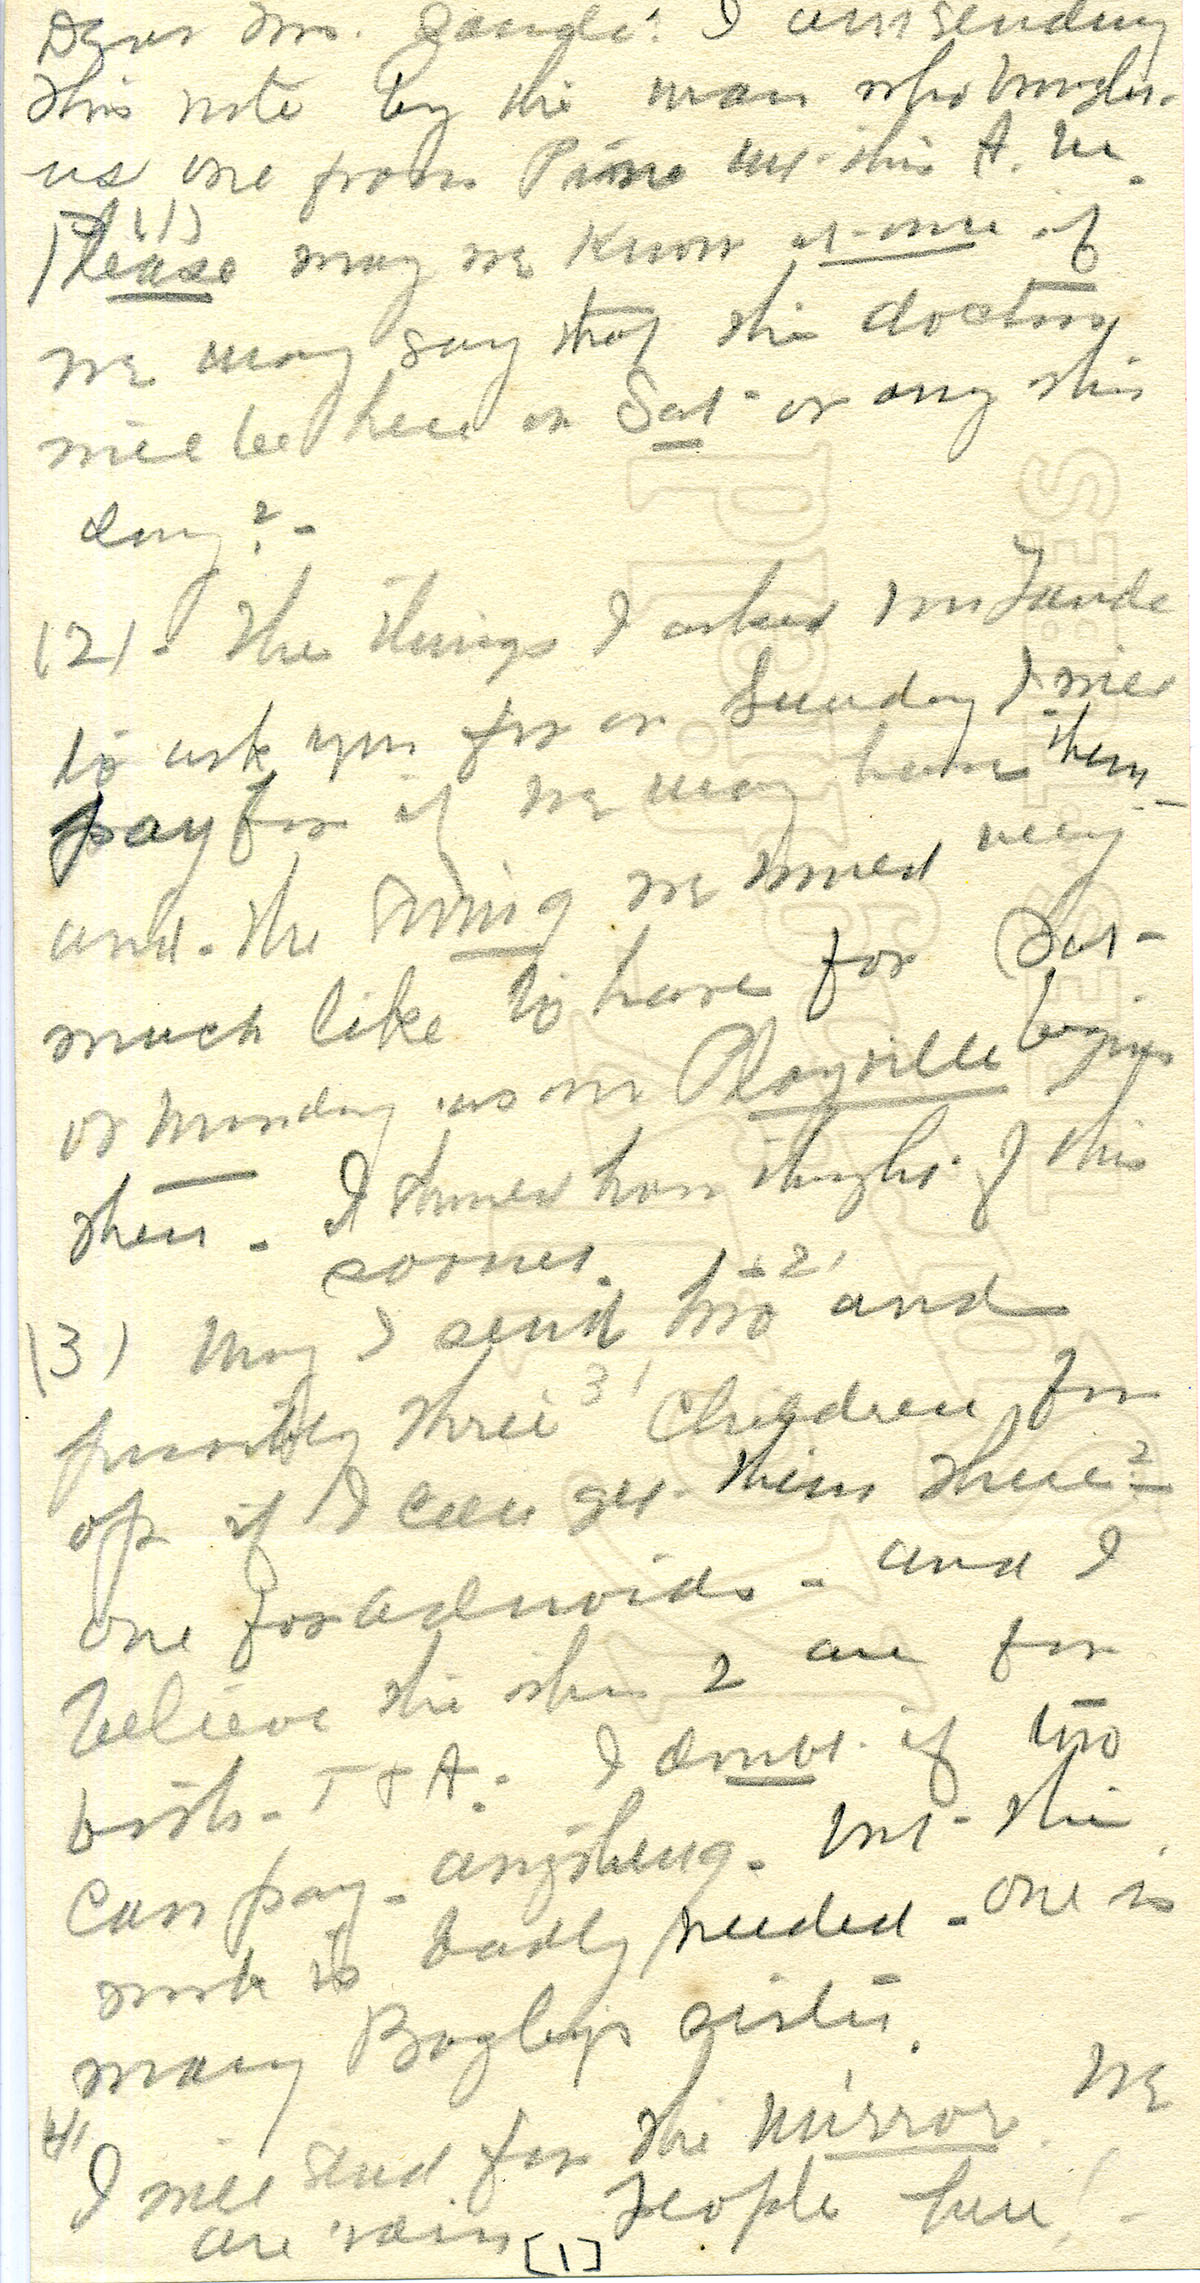 Dear Mr. Zande: I am sending
this note by the man who brings
us one from Pine Mt. this A. M.
(1)
Please may we know at once if
we may say that the doctors
will be here on Sat. or any this
day? -
(2) - The things I asked Mr Zande
to ask you for on Sunday I will
pay for if we may have them -
and - the swing we would very
much like to have for Sat -
or Monday as our Playville begins
then - I should have thought of this
sooner.
(3) May I send two "2" and
possibly three "3" children for
op. if I can get them there?
one for adenoids - and I
believe the other 2 are for
both - T & A. I doubt if two
can pay - anything - but - the
work is badly needed - one is
Mary Begley's sister.
4)
I will send for the mirror. We
are vain people here! -
[1]